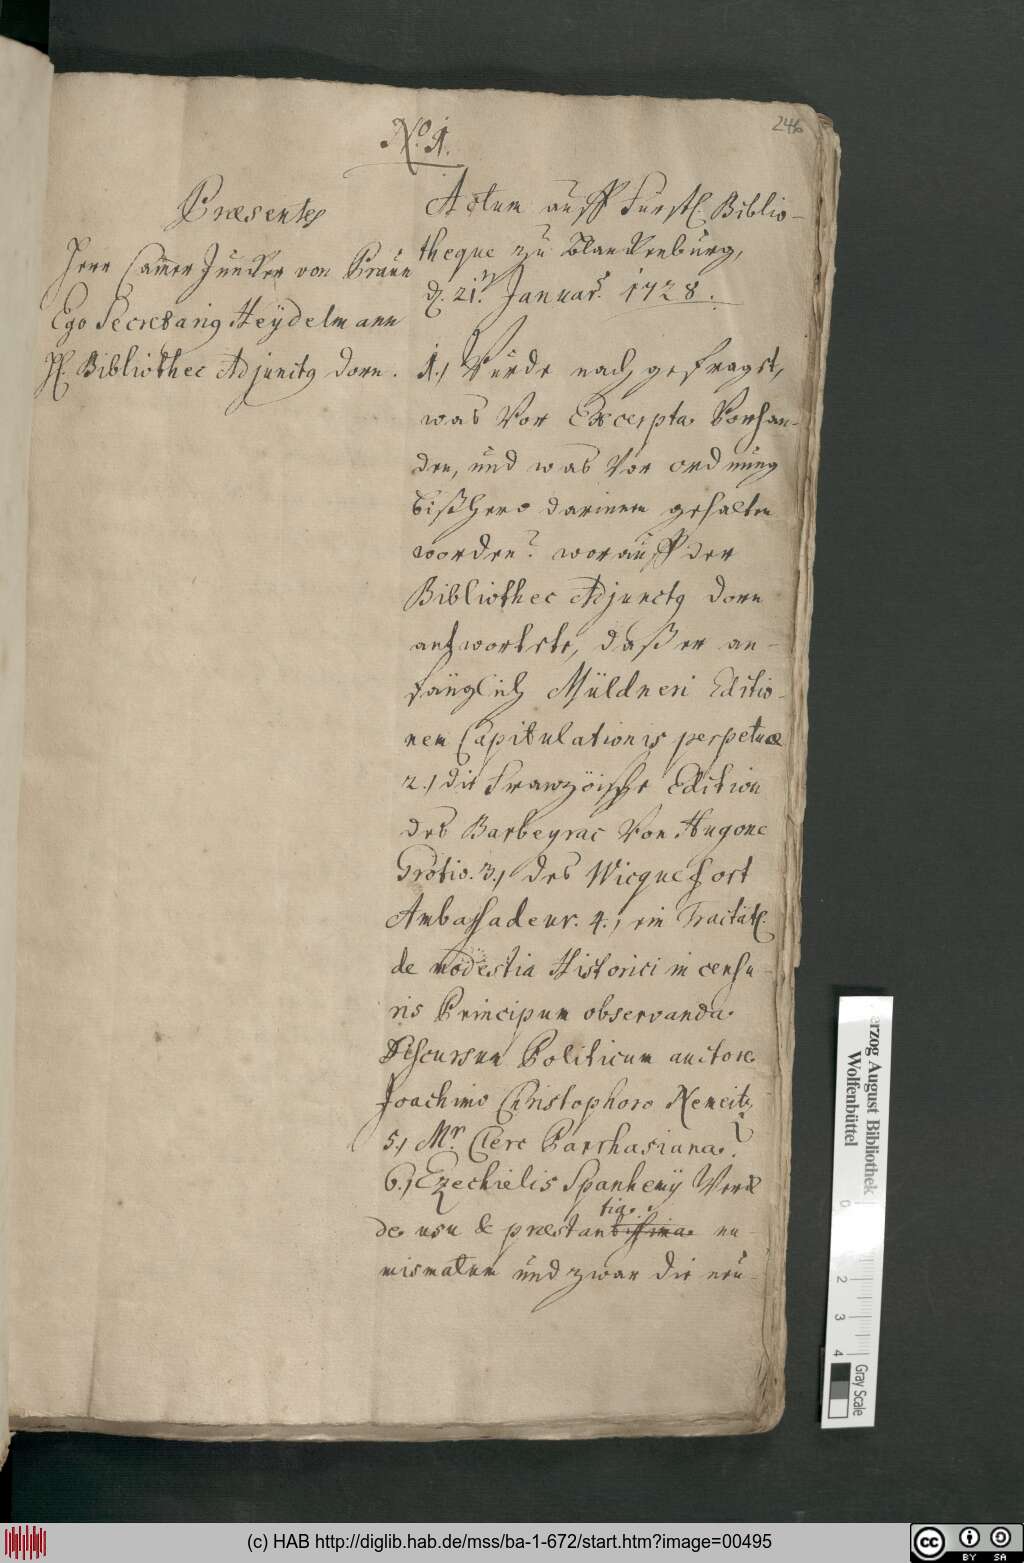 246
No. 1.
Præsentes
Herr Cammer Juncker von Praun
Ego Secretarius Heÿdelmann
H. Bibliothec Adjunctus Dorn.
Actum auff Fürstl. Biblio-
theque zu Blanckenburg,
d. 21.ten Januar. 1728.
1., Wurde nach gefragt,
was vor Excerpta vorhan-
den, und was vor ordnung
bißhero darinnen gehalten
worden? worauff der
Bibliothec Adjunctus Dorn
antwortete, daß er an-
fänglich Müldneri Editio-
nem Capitulationis perpetuæ
2., die Frantzöische Edition
des Barbeyrac von Hugone
Grotio. 3., des Wicquefort
Ambassadeur. 4., ein Tractätl.
de modestia Historici in censu-
ris Principum observanda.
Discursum Politicum auctore
Joachimo Christophoro Nemeitz
5., Mr. Clerc Parrhasiana.
6., Ezechielis Spanhemÿ Werck
tia
de usu & præstantissima nu-
mismatum und zwar die neu-
erzog August Bibliothek
Wolfenbüttel
0
2
3
4
Gray Scale
(c) HAB http://diglib.hab.de/mss/ba-1-672/start.htm?image=00495
cc BY SA